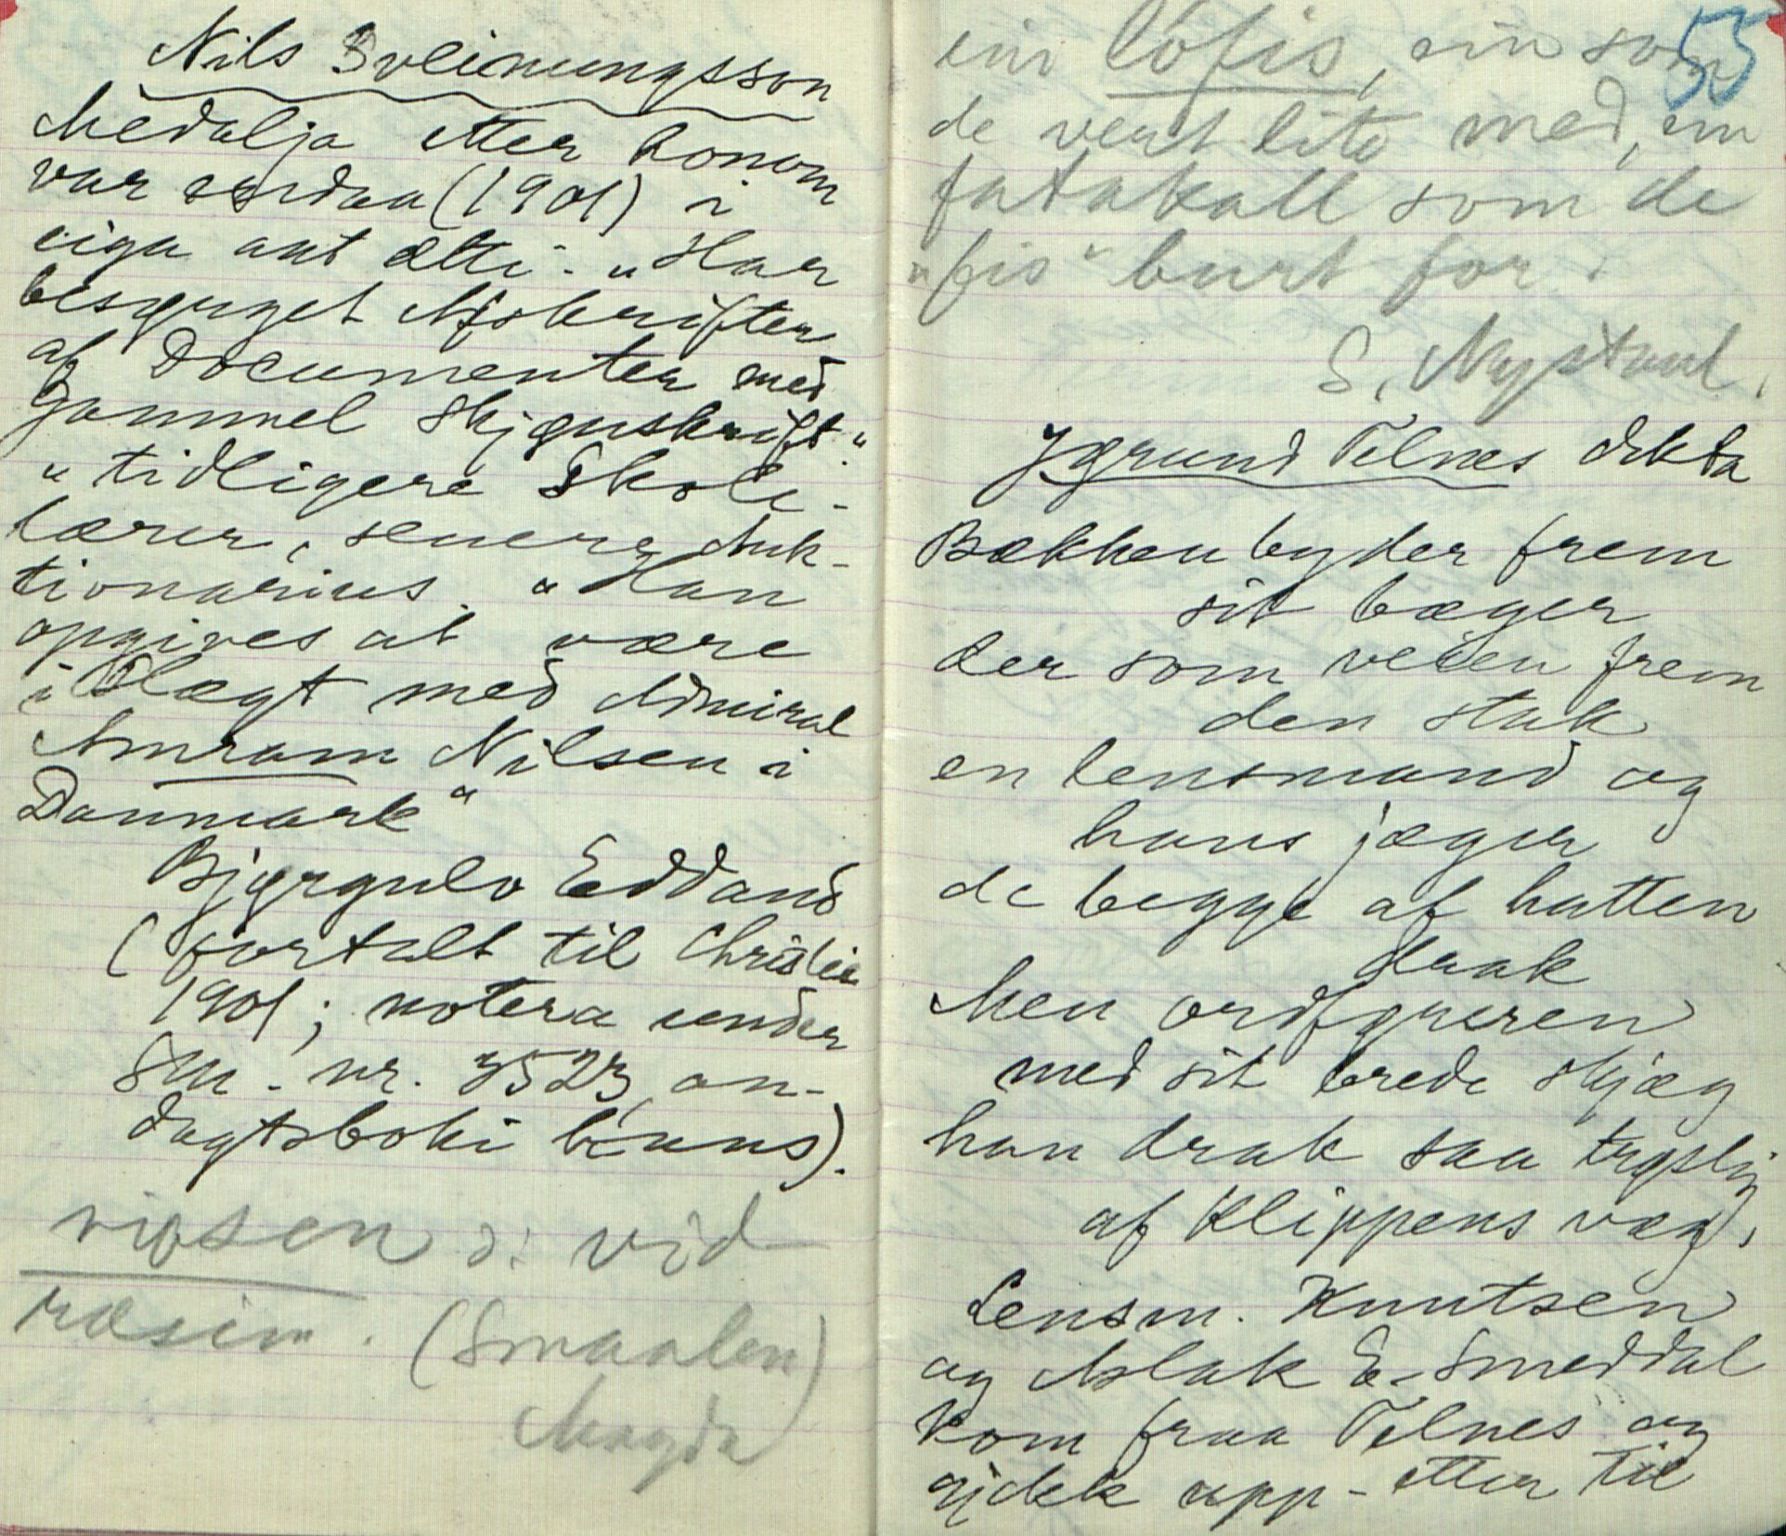 Nils Sveinungsson
Medalja etter honom
var endaa (1901) i
eiga aat ætti - „Har
besørget Afskrifter
af Documenter med
gammel Skjønskrift"
„tidligere Skole-
lærer, senere Auk-
tionarius. „Han
opgives at være
i Slægt med Admiral
Amram Nilsen i
Danmark"
Bjørgulv Eddand
(fortalt til Christie
1901; notera under
Sm. nr. 3523, an-
dagtsboki hans).
viosen ɔ: vid
ræsin. (Smaalen)
Magda
55
ein lófis, ein som
de vert lite med, ein
fatakall som de
„fis" burt for.
S. Nystaul.
Jørund Telnes dikta
Bækken byder frem
sit bæger
der som veien frem
den stak
en lensmand og
hans jæger
de begge af hatten
drak
Men ordføreren
med sit brede skjæg
han drak saa trøstig
af Klippens væg.
Lensm. Knutsen
og Aslak E. Smeddal
kom fraa Telnes og
gjekk upp-etter til